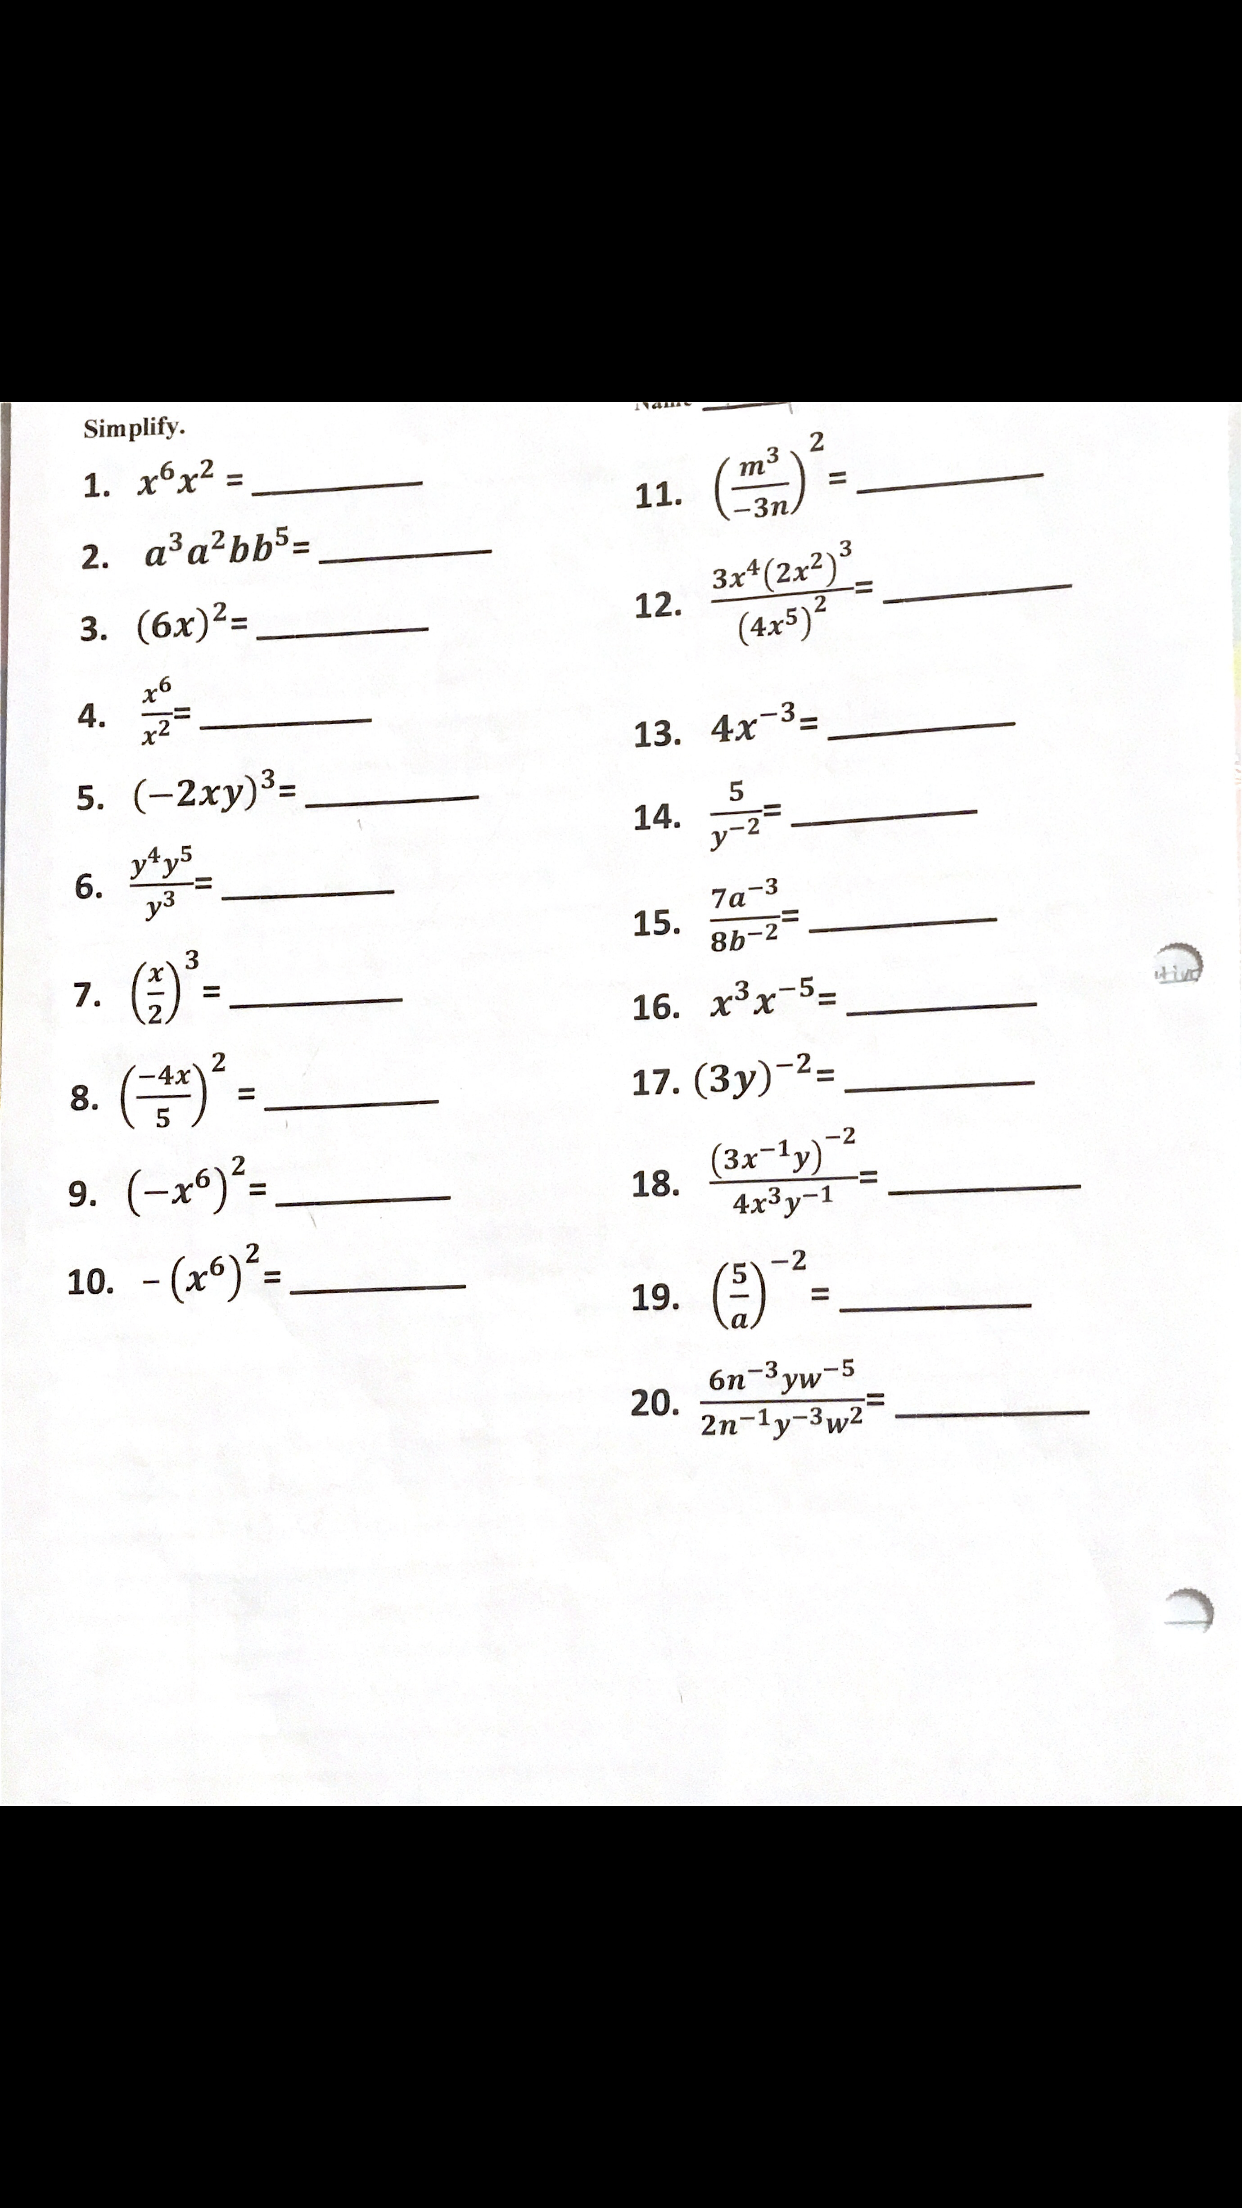 Simplify.
1. x⁶x² = ______
2. a³a²bb⁵= ______
3. (6x)²= ______
4. x⁶/x²= ______
5. (−2xy)³= ______
6. y⁴y⁵/y³= ______
7. (x/2)³= ______
8. (−4x/5)² = ______
9. (−x⁶)²= ______
10. -(x⁶)²= ______
Name ______
11. (m³/−3n)²= ______
12. 3x⁴(2x²)³/(4x⁵)²= ______
13. 4x⁻³= ______
14. 5/y⁻²= ______
15. 7a⁻³/8b⁻²= ______
16. x³x⁻⁵= ______
17. (3y)⁻²= ______
18. (3x⁻¹y)⁻²/4x³y⁻¹= ______
19. (5/a)⁻² = ______
20. 6n⁻³yw⁻⁵/2n⁻¹y⁻³w²= ______